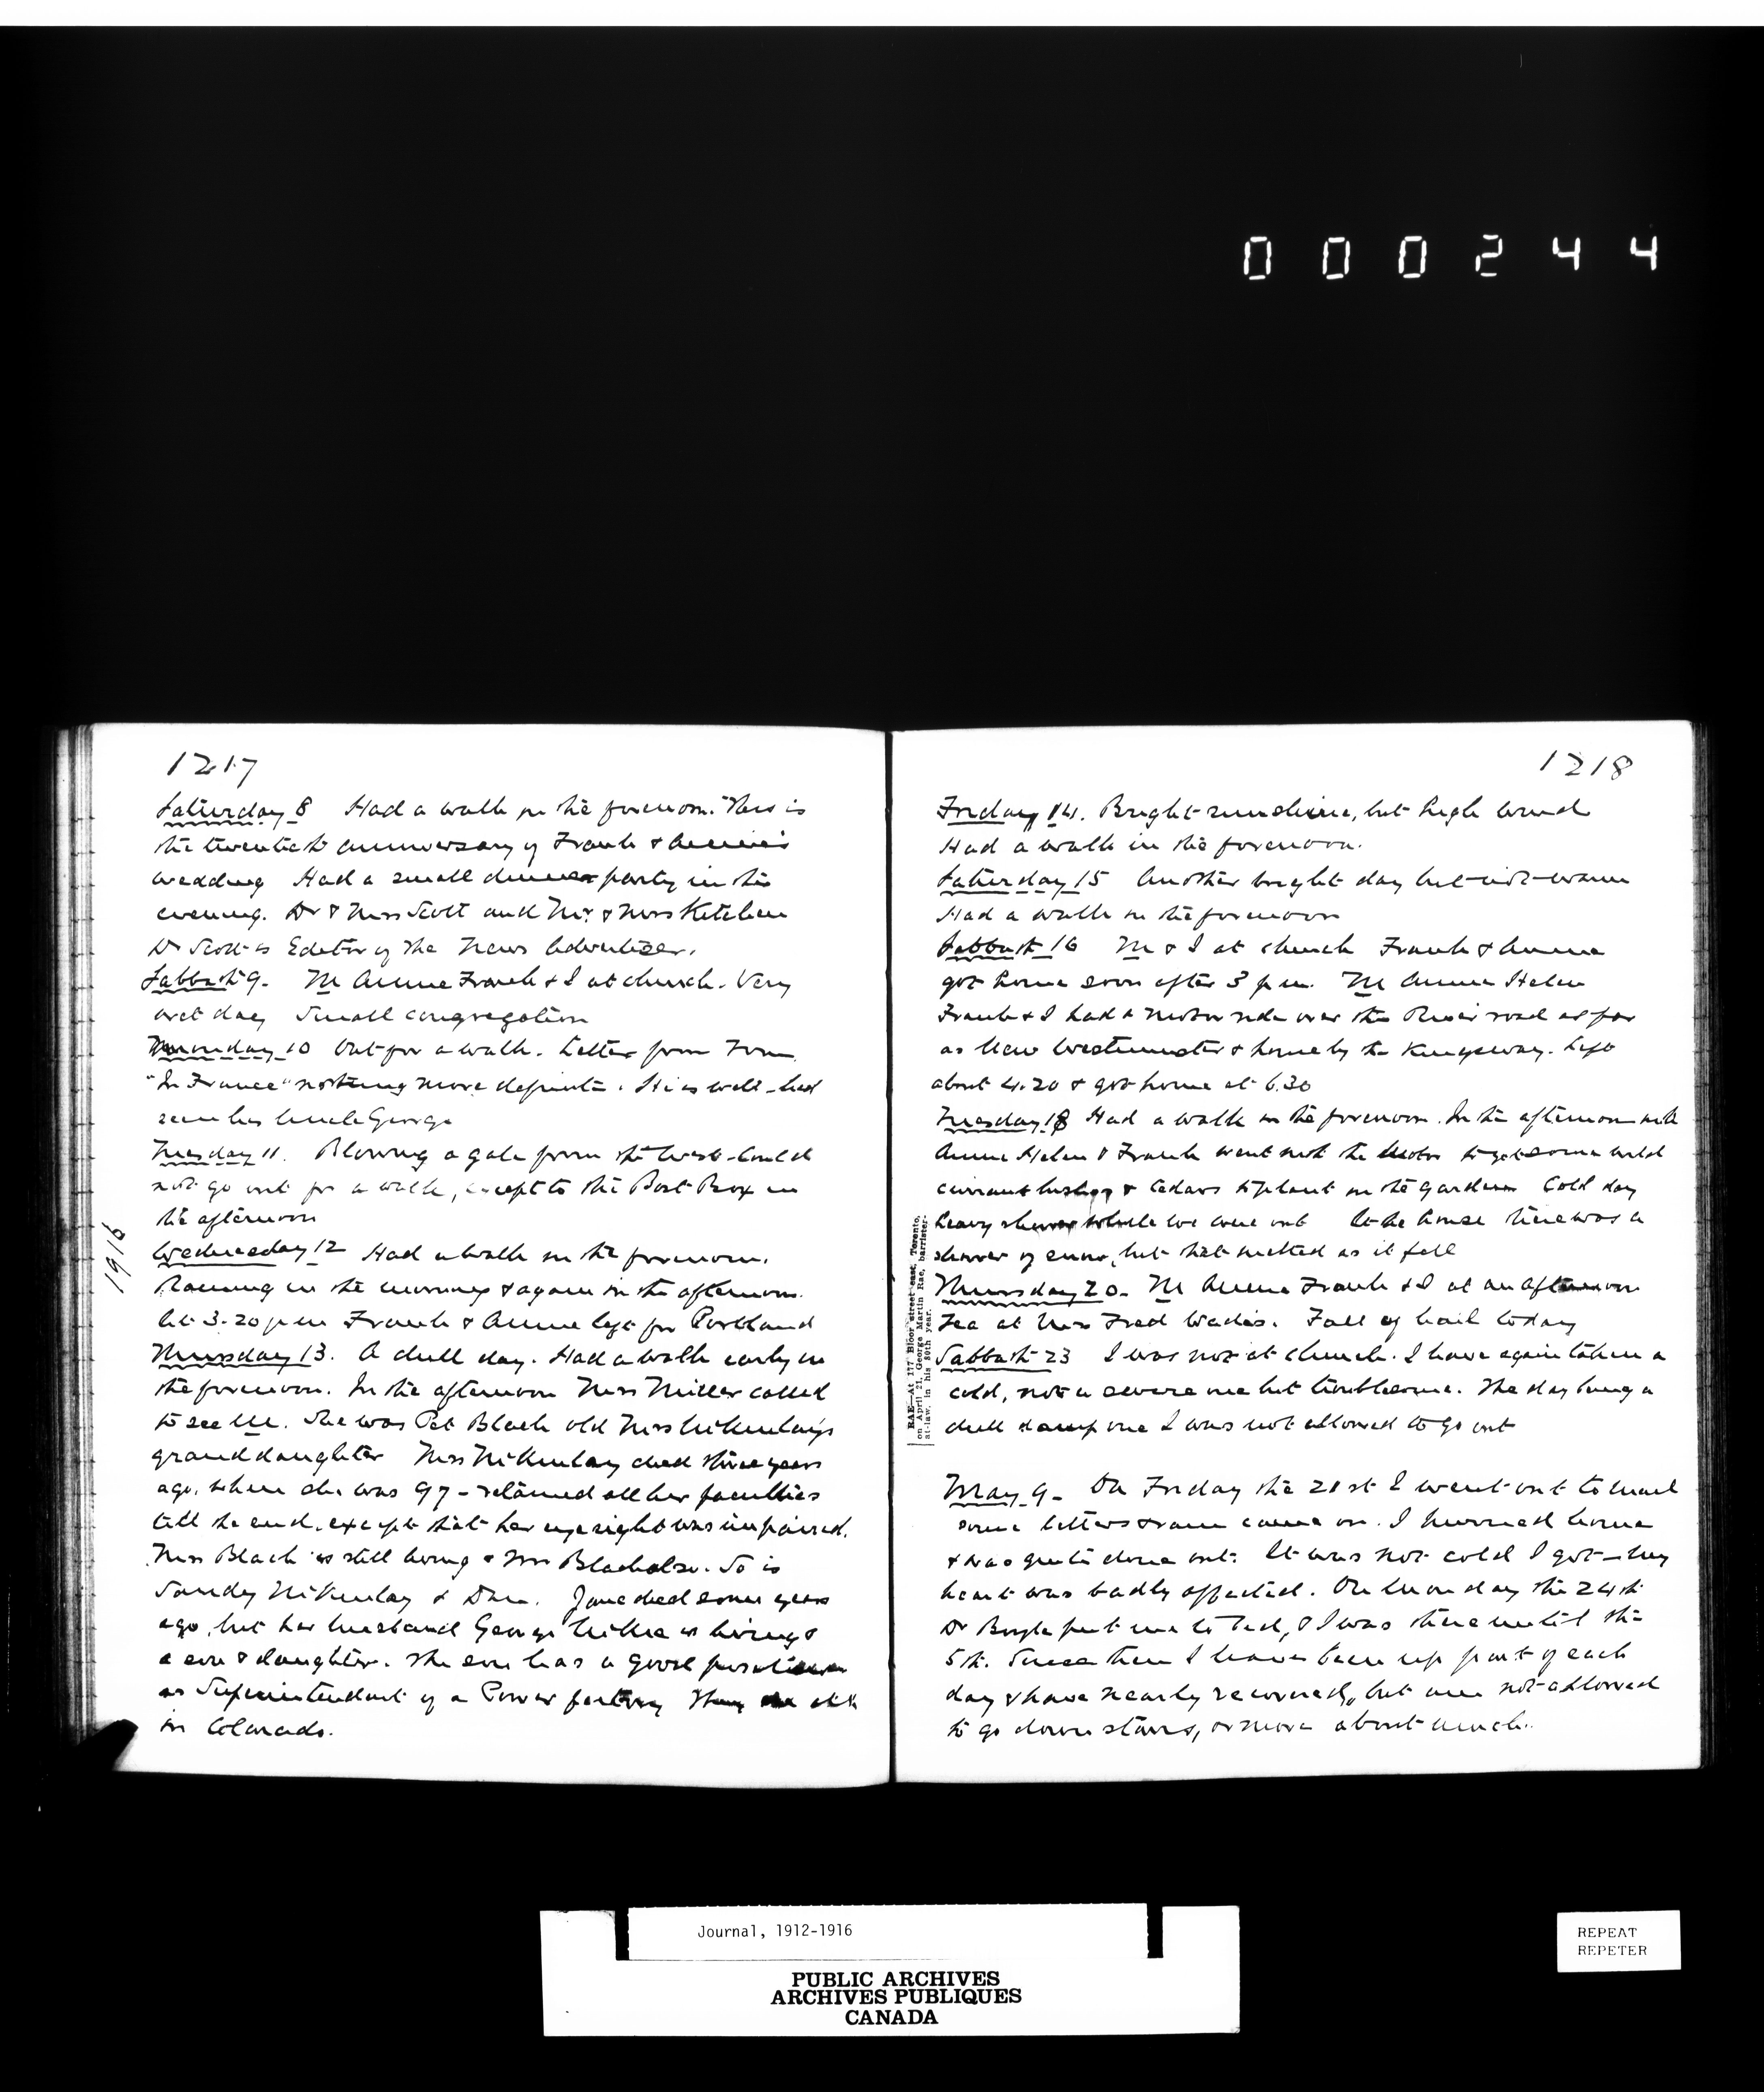 000244
1217
Saturday 8 Had a walk in the forenoon. This is
the twentieth anniversary of Frank & Annie's
wedding Had a small dinner party in the
evening. Dr & Mrs Scott and Mr & Mrs Ketchen
Dr Scott is Editor of the News Advertizer.
Sabbath 9. M Annie Frank & I at church. Very
wet day Small congregation
Monday 10 Out for a walk. Letter from Tom
"In France" nothing more definite. He is well - had
seen his Uncle George
Tuesday 11. Blowing a gale from the West - Could
not go out for a walk, except to the Post Box in
the afternoon
1916
Wednesday 12 Had a walk in the forenoon.
Raining in the morning & again in the afternoon.
At 3.20 p m Frank & Annie left for Portland
Thursday 13. A dull day. Had a walk early in
the forenoon. In the afternoon Mrs Miller called
to see M. She was Pet Black old Mrs McKinlay's
granddaughter Mrs McKinlay died three years
ago, when she was 97 - retained all her faculties
till the end, except that her eyesight was impaired.
Mrs Black is still living & Mr Black also. So is
Sandy McKinlay & Dun. Jane died some years
ago, but her husband George is living &
a son & daughter. The son has a good position
as Superintendent of a Power factory They all
in Colorado.
1218
Friday 14. Bright sunshine, but high wind
Had a walk in the forenoon.
Saturday 15 Another bright day but not warm
Had a walk in the forenoon
Sabbath 16 M & I at church Frank & Annie
got home soon after 3 p m. M Annie Helen
Frank & I had a motor ride over the River road as far
as New Westminster & home by the Kingsway. Left
about 4.20 & got home at 6.30
Tuesday 18 Had a walk in the forenoon. In the afternoon with
Annie Helen & Frank went out the Motor to get some wild
currant bushes & Cedars to plant in the garden Cold day
heavy shower while we were out At the house there was a
shower of snow, but that melted as it fell
Thursday 20. M Annie Frank & I at an afternoon
Tea at Mrs Fred Wade's. Fall of hail today
Sabbath 23 I was not at church. I have again taken a
cold, not a severe one but troublesome. The day being a
dull damp one I was not allowed to go out
RAE—At 177 Bloor street east, Toronto,
on April 21, George Martin Rae, barrister-
at-law, in his 80th year.
May 9 - On Friday the 21st I went out to mail
some letters & rain came on. I hurried home
& was quite done out. It was not cold I got - my
heart was badly affected. On Monday the 24th
Dr Boyle put me to bed, & I was there until the
5th. Since then I have been up part of each
day & have nearly recovered, but am not allowed
to go down stairs, or move about much.
Journal, 1912-1916
PUBLIC ARCHIVES
ARCHIVES PUBLIQUES
CANADA
REPEAT
REPETER